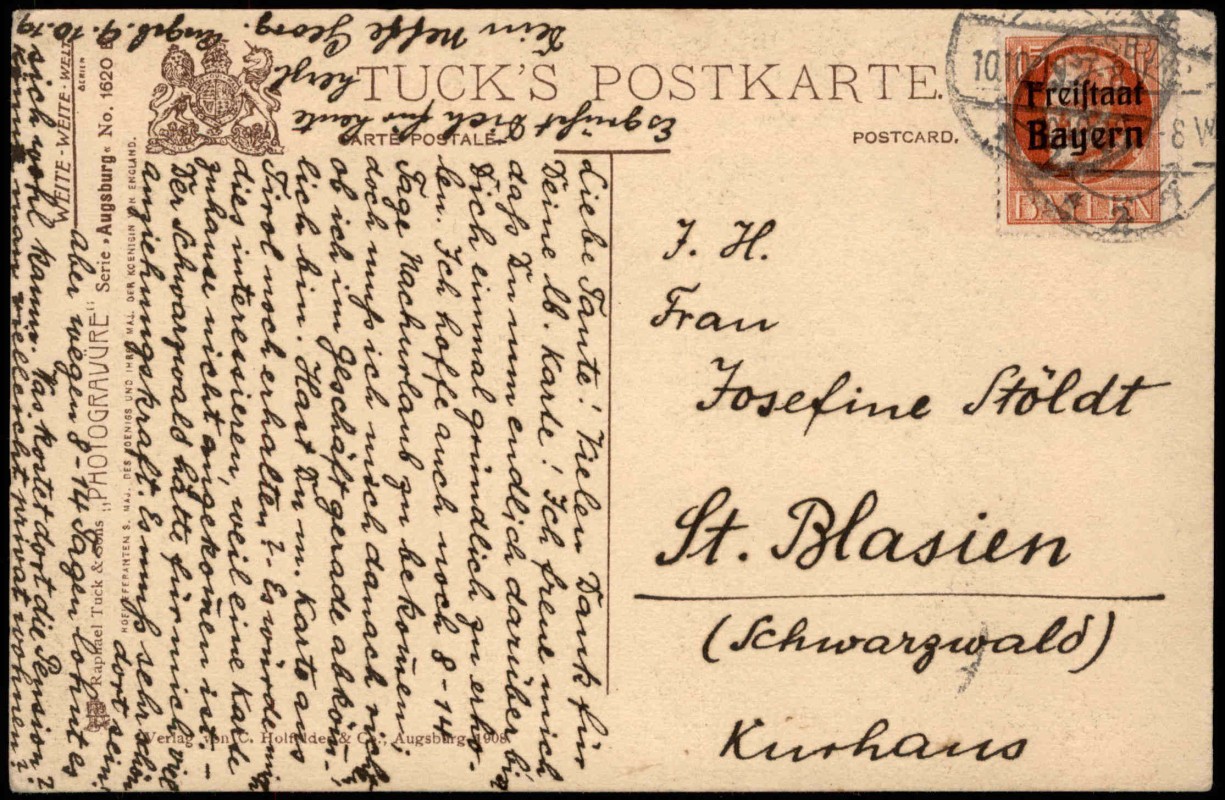 TUCK'S POSTKARTE.
CARTE POSTALE.
POSTCARD.
Freistaat
Bayern
BAYERN
J. H.
Frau
Josefine Stöldt
St. Blasien
(Schwarzwald)
Kurhaus
Liebe Tante! Vielen Dank für
Deine lb. Karte! Ich freue mich
daß Du nun endlich darüber bist
Dich einmal gründlich zu erho-
len. Ich hoffe auch noch 8-14
Tage Nachurlaub zu bekom̄en.
doch muß ich mich danach richten
ob ich im Geschäft gerade abköm̄-
lich bin. Hast Du m. Karte aus
Tirol noch erhalten? Es würde mich
dies interessieren, weil eine Karte
zuhause nicht angekom̄en ist.-
Der Schwarzwald hätte für mich viel
Anziehungskraft. Es muß sehr schön
dort sein!
Aber wegen 8-14 Tagen lohnt es
sich wohl kaum. Was kostet dort die Pension?
kann man vielleicht privat wohnen?
Es grüßt Dich für heute
herzl.
Dein Neffe Georg.
Augsb. 9.10.19
WEITE-WEITE-WELT
BERLIN
Raphael Tuck & Sons „PHOTOGRAVÜRE" Serie »Augsburg« No. 1620 B
HOFLIEFERANTEN S. MAJ. DES KOENIGS UND IHRER MAJ. DER KOENIGIN VON ENGLAND.
Verlag von C. Holfelder & Co., Augsburg 1908